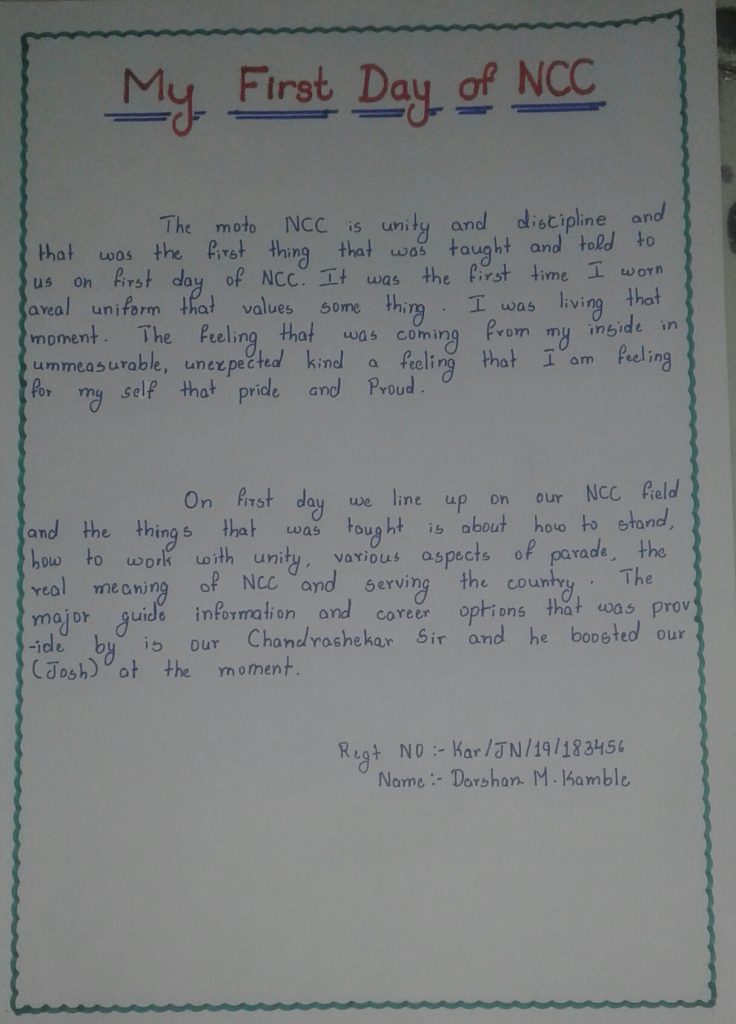 My First Day of NCC
The moto NCC is unity and discipline and
that was the first thing that was taught and told to
us on first day of NCC. It was the first time I worn
areal uniform that values some thing. I was living that
moment. The feeling that was coming from my inside in
ummeasurable, unexpected kind a feeling that I am feeling
for my self that pride and Proud.
On first day we line up on our NCC field
and the things that was taught is about how to stand,
how to work with unity, various aspects of parade, the
real meaning of NCC and serving the country. The
major guide information and career options that was prov
-ide by is our Chandrashekar Sir and he boosted our
(Josh) at the moment.
Regt NO :- Kar/JN/19/183456
Name :- Darshan M. Kamble